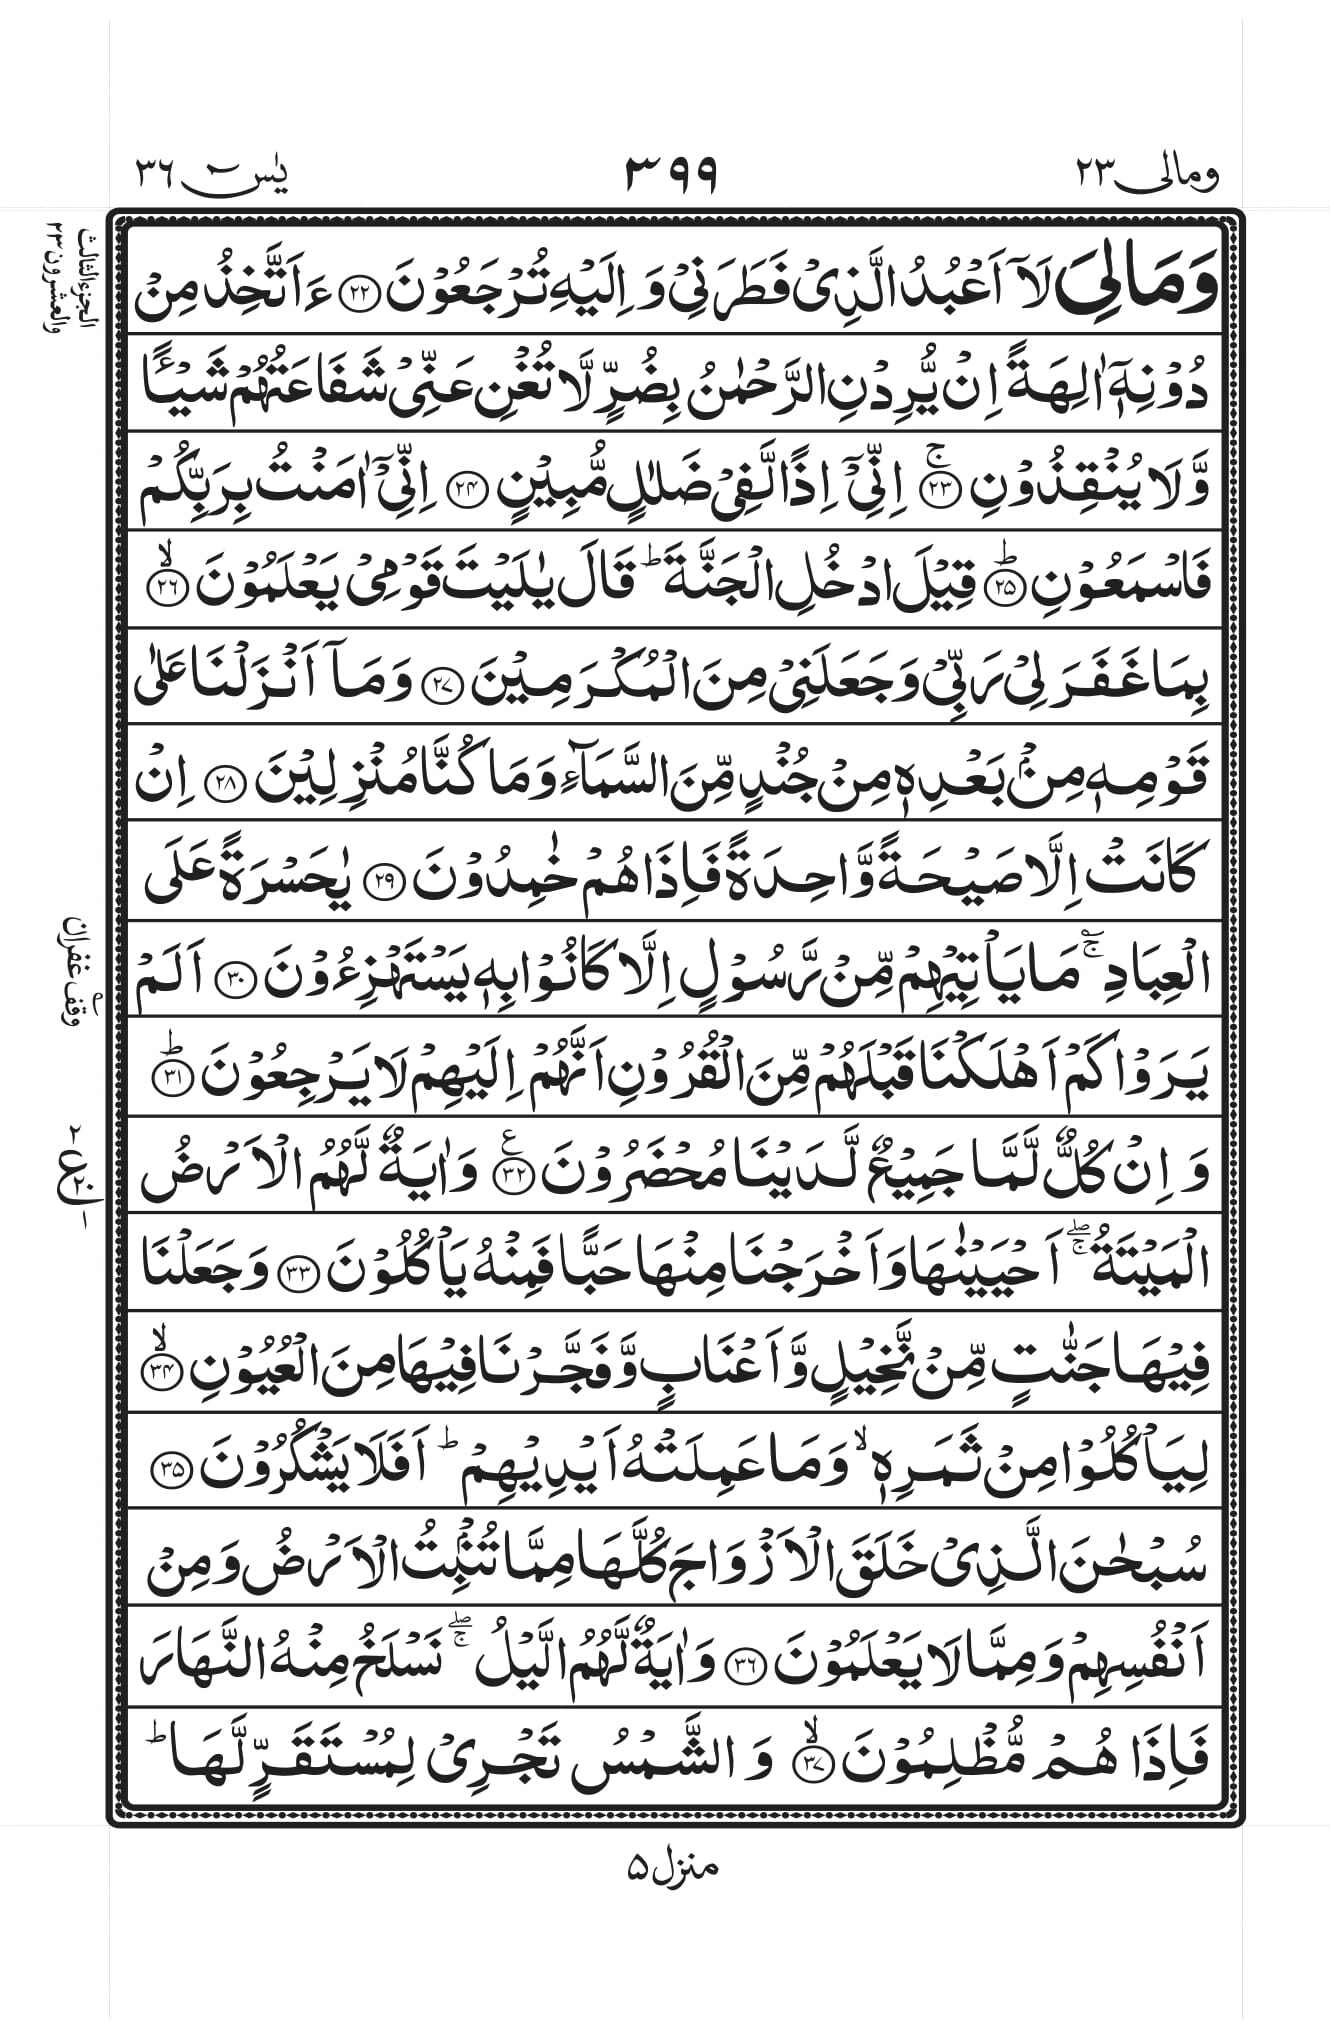 ومالی ۲۳
۳۹۹
یٰسٓ ۳۶
الجزء الثالث
والعشرون ۲۳
وَمَالِیَ لَاۤ اَعْبُدُ الَّذِیْ فَطَرَنِیْ وَ اِلَیْهِ تُرْجَعُوْنَ ﴿۲۲﴾ ءَاَتَّخِذُ مِنْ
دُوْنِهٖۤ اٰلِهَةً اِنْ یُّرِدْنِ الرَّحْمٰنُ بِضُرٍّ لَّا تُغْنِ عَنِّیْ شَفَاعَتُهُمْ شَیْـًٔا
وَّلَا یُنْقِذُوْنِ ﴿۲۳﴾ۚ اِنِّیْۤ اِذًا لَّفِیْ ضَلٰلٍ مُّبِیْنٍ ﴿۲۴﴾ اِنِّیْۤ اٰمَنْتُ بِرَبِّكُمْ
فَاسْمَعُوْنِ ﴿۲۵﴾ؕ قِیْلَ ادْخُلِ الْجَنَّةَ ؕ قَالَ یٰلَیْتَ قَوْمِیْ یَعْلَمُوْنَ ﴿۲۶﴾ۙ
بِمَا غَفَرَ لِیْ رَبِّیْ وَجَعَلَنِیْ مِنَ الْمُكْرَمِیْنَ ﴿۲۷﴾ وَمَاۤ اَنْزَلْنَا عَلٰی
قَوْمِهٖ مِنْۢ بَعْدِهٖ مِنْ جُنْدٍ مِّنَ السَّمَآءِ وَمَا كُنَّا مُنْزِلِیْنَ ﴿۲۸﴾ اِنْ
كَانَتْ اِلَّا صَیْحَةً وَّاحِدَةً فَاِذَا هُمْ خٰمِدُوْنَ ﴿۲۹﴾ یٰحَسْرَةً عَلَی
الْعِبَادِ ۚ مَا یَاْتِیْهِمْ مِّنْ رَّسُوْلٍ اِلَّا كَانُوْا بِهٖ یَسْتَهْزِءُوْنَ ﴿۳۰﴾ اَلَمْ
وقف غفران
یَرَوْا كَمْ اَهْلَكْنَا قَبْلَهُمْ مِّنَ الْقُرُوْنِ اَنَّهُمْ اِلَیْهِمْ لَا یَرْجِعُوْنَ ﴿۳۱﴾ؕ
وَ اِنْ كُلٌّ لَّمَّا جَمِیْعٌ لَّدَیْنَا مُحْضَرُوْنَ ﴿۳۲﴾ع وَاٰیَةٌ لَّهُمُ الْاَرْضُ
۲ ع ۲۰ ۱
الْمَیْتَةُ ۖۚ اَحْیَیْنٰهَا وَاَخْرَجْنَا مِنْهَا حَبًّا فَمِنْهُ یَاْكُلُوْنَ ﴿۳۳﴾ وَجَعَلْنَا
فِیْهَا جَنّٰتٍ مِّنْ نَّخِیْلٍ وَّاَعْنَابٍ وَّفَجَّرْنَا فِیْهَا مِنَ الْعُیُوْنِ ﴿۳۴﴾ۙ
لِیَاْكُلُوْا مِنْ ثَمَرِهٖ ۙ وَمَا عَمِلَتْهُ اَیْدِیْهِمْ ؕ اَفَلَا یَشْكُرُوْنَ ﴿۳۵﴾
سُبْحٰنَ الَّذِیْ خَلَقَ الْاَزْوَاجَ كُلَّهَا مِمَّا تُنْۢبِتُ الْاَرْضُ وَمِنْ
اَنْفُسِهِمْ وَمِمَّا لَا یَعْلَمُوْنَ ﴿۳۶﴾ وَاٰیَةٌ لَّهُمُ الَّیْلُ ۖۚ نَسْلَخُ مِنْهُ النَّهَارَ
فَاِذَا هُمْ مُّظْلِمُوْنَ ﴿۳۷﴾ۙ وَ الشَّمْسُ تَجْرِیْ لِمُسْتَقَرٍّ لَّهَا ؕ
منزل ۵